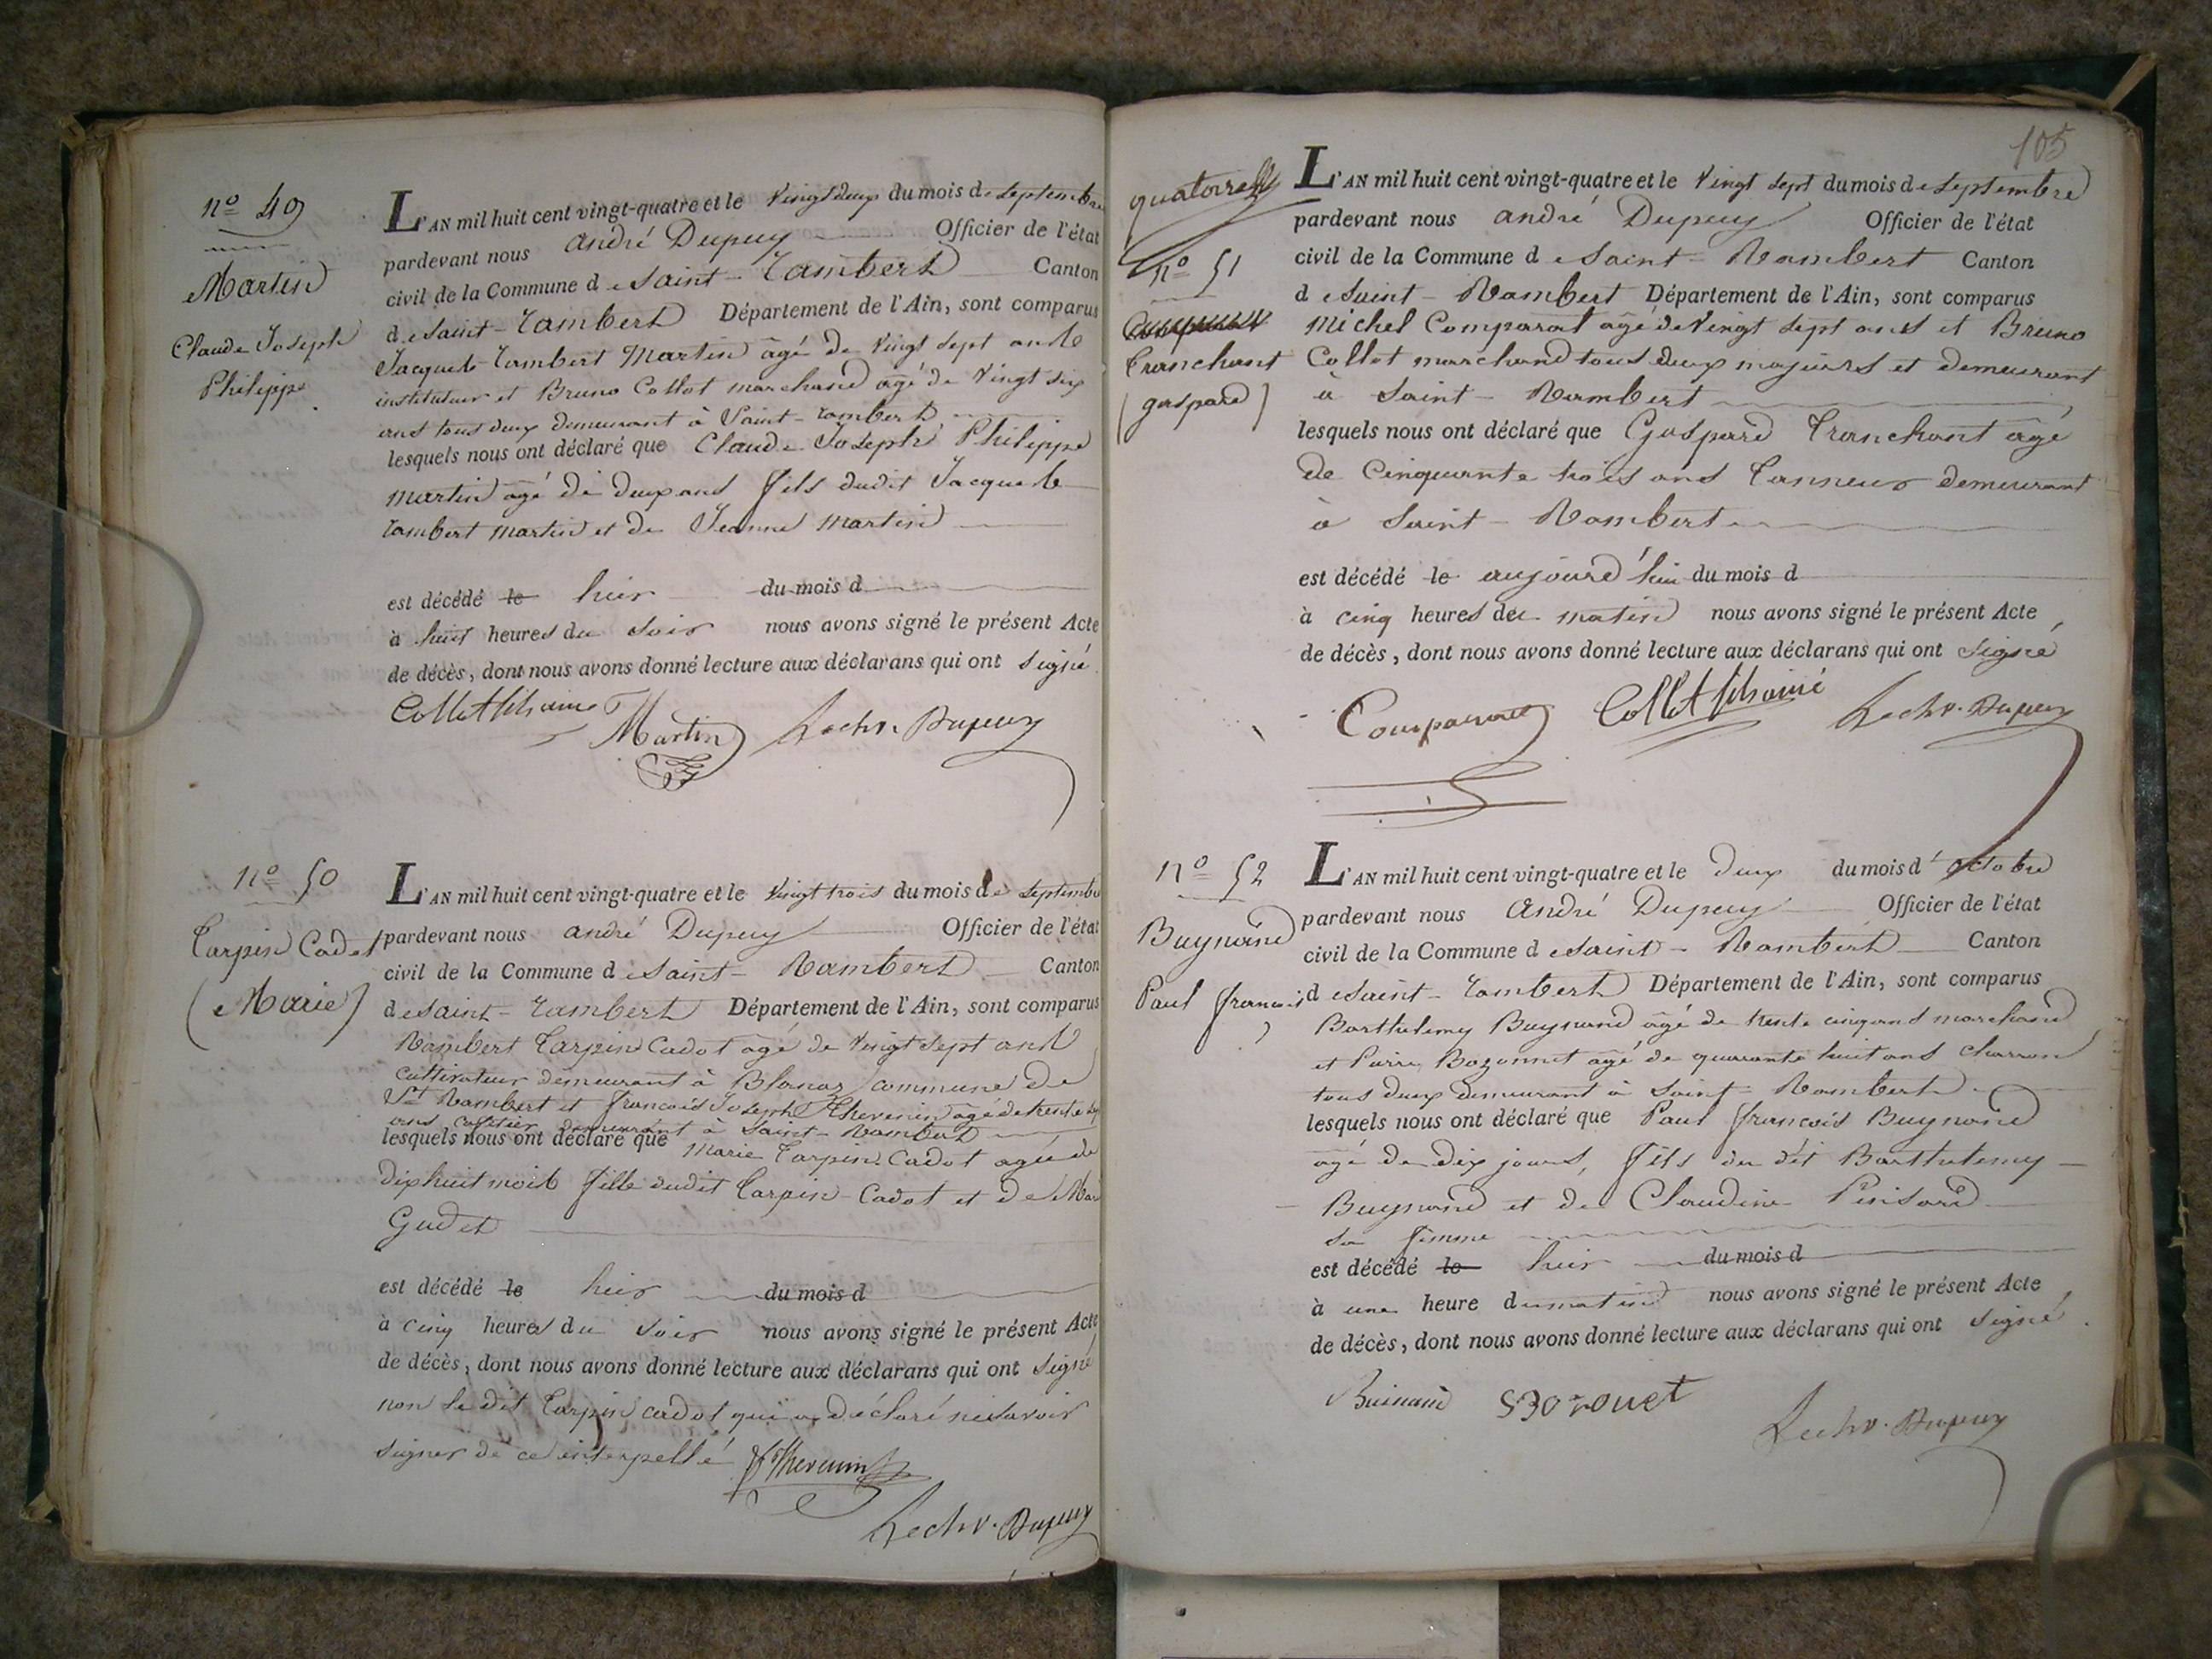 nº 49
Martin
Claude Joseph
Philippe
L'AN mil huit cent vingt-quatre et le vingt deux du mois de septembre
pardevant nous andré Dupuy Officier de l'état
civil de la Commune de Saint-Rambert Canton
de Saint-Rambert Département de l'Ain, sont comparus
Jacques Rambert Martin âgé de vingt sept ans
instituteur et Bruno Collot marchand agé de vingt six
ans tous deux demeurant à Saint-Rambert
lesquels nous ont déclaré que Claude Joseph Philippe
martin âgé de deux ans fils dudit Jacques
Rambert martin et de Jeanne martin
est décédé le hier du mois d
à huit heures du soir nous avons signé le présent Acte
de décès, dont nous avons donné lecture aux déclarans qui ont signé
Collot fils ainé
Martin
Dupuy
nº 50
Tarpin Cadot
(Marie)
L'AN mil huit cent vingt-quatre et le vingt trois du mois de septembre
pardevant nous andré Dupuy Officier de l'état
civil de la Commune de Saint-Rambert Canton
de Saint-Rambert Département de l'Ain, sont comparus
Rambert Tarpin Cadot agé de vingt sept ans
cultivateur demeurant à Blanaz commune de
St Rambert et françois Joseph Thevenin âgé de trente
ans demeurant à Saint-Rambert
lesquels nous ont déclaré que Marie Tarpin Cadot agée de
dix huit mois fille dudit Tarpin-Cadot et de
Gudet
est décédé le hier du mois d
à cinq heures du soir nous avons signé le présent Acte
de décès, dont nous avons donné lecture aux déclarans qui ont signé
non le dit Tarpin cadot qui a déclaré ne savoir
signer de ce interpellé
Thevenin
Dupuy
105
quatorze
nº 51
Tranchant
(gaspard)
L'AN mil huit cent vingt-quatre et le vingt sept du mois de septembre
pardevant nous andré Dupuy Officier de l'état
civil de la Commune de Saint-Rambert Canton
de Saint-Rambert Département de l'Ain, sont comparus
Michel Comparat âgé de vingt sept ans et Bruno
Collot marchand tous deux majeurs et demeurant
à Saint-Rambert
lesquels nous ont déclaré que Gaspard Tranchant âgé
de Cinquante trois ans Tanneur demeurant
à Saint-Rambert
est décédé le aujourd'hui du mois d
à cinq heures du matin nous avons signé le présent Acte
de décès, dont nous avons donné lecture aux déclarans qui ont signé
Collot fils ainé
Dupuy
nº 52
Buynand
Paul françois
L'AN mil huit cent vingt-quatre et le deux du mois d'octobre
pardevant nous André Dupuy Officier de l'état
civil de la Commune de Saint-Rambert Canton
de Saint-Rambert Département de l'Ain, sont comparus
Barthelemy Buynand âgé de trente cinq ans marchand
et Pierre Bozonnet agé de quarante huit ans charron
tous deux demeurant à Saint-Rambert
lesquels nous ont déclaré que Paul françois Buynand
agé de dix jours, fils du dit Barthelemy
Buynand et de Claudine
sa femme
est décédé le hier du mois d
à une heure du matin nous avons signé le présent Acte
de décès, dont nous avons donné lecture aux déclarans qui ont signé
Buinand
Dupuy